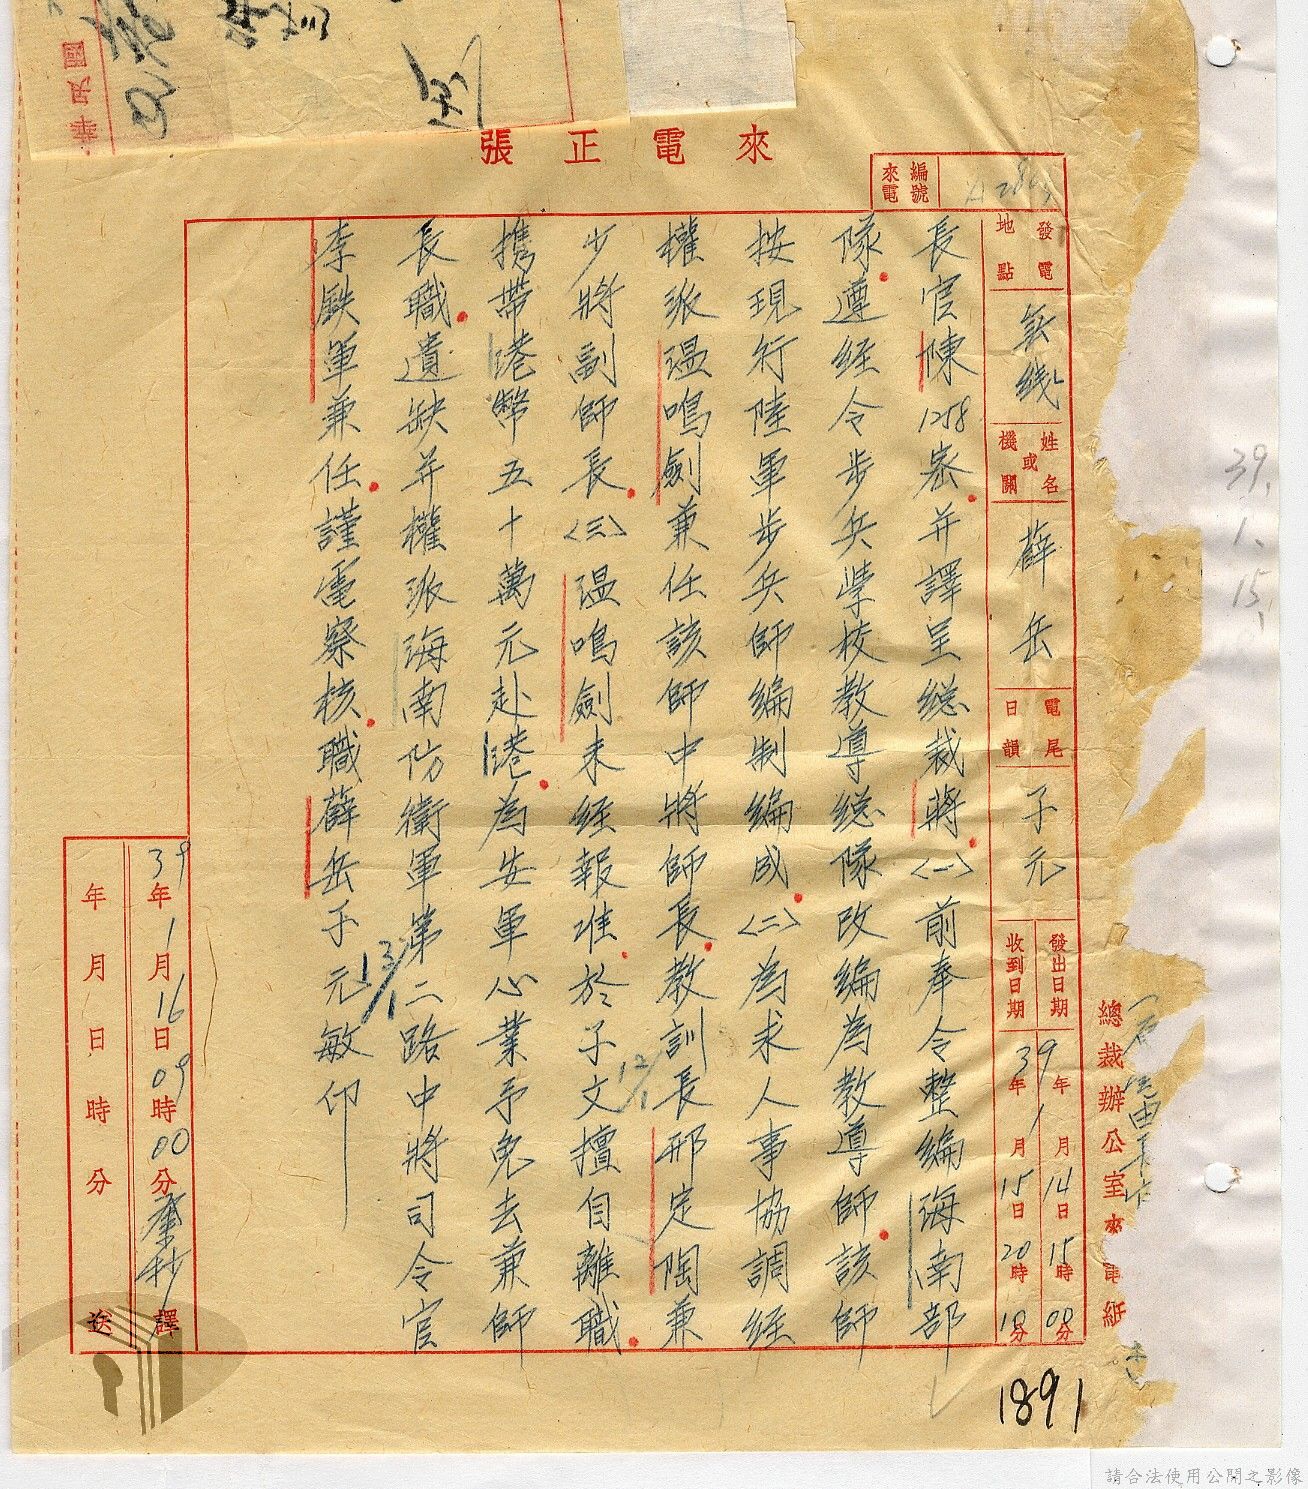 來電正張
來電
編號
發電
地點
無線
姓名
或
機關
薛岳
電尾
日韻
子元
發出日期
39年1月14日15時00分
收到日期
年 月15日20時10分
總裁辦公室來電紙
39.
1.
15.
長官陳1258密并譯呈總裁蔣〈一〉前奉令整編海南部
隊遵經令步兵學校教導總隊改編為教導師該師
按現行陸軍步兵師編制編成〈二〉為求人事協調經
權派温鳴劍兼任該師中將師長教訓長邢定陶兼
少將副師長〈三〉温鳴劍未經報准於子文擅自離職
12/1
携帶港幣五十萬元赴港為安軍心業予免去兼師
長職遺缺并權派海南防衛軍第二路中將司令官
李鉄軍兼任謹電察核職薛岳子元敏印
13/1
39年1月16日09時00分 譯
年月日時分 送
1891
請合法使用公開之影像